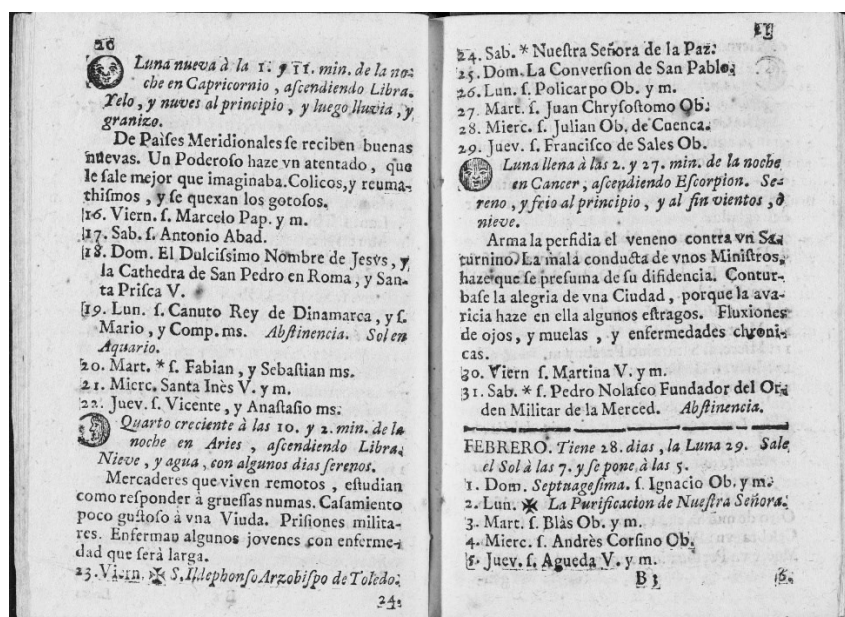 20
Luna nueva à la 1. y 11. min. de la no-
che en Capricornio, aſcendiendo Libra.
Yelo, y nuves al principio, y luego lluvia, y
granizo.
De Paìſes Meridionales ſe reciben buenas
nuevas. Un Poderoſo haze vn atentado, que
le ſale mejor que imaginaba. Colicos, y reuma-
thiſmos, y ſe quexan los gotoſos.
16. Viern. ſ. Marcelo Pap. y m.
17. Sab. ſ. Antonio Abad.
18. Dom. El Dulciſsimo Nombre de Jesvs, y
la Cathedra de San Pedro en Roma, y San-
ta Priſca V.
19. Lun. ſ. Canuto Rey de Dinamarca, y ſ.
Mario, y Comp. ms. Abſtinencia. Sol en
Aquario.
20. Mart. * ſ. Fabian, y Sebaſtian ms.
21. Mierc. Santa Inès V. y m.
22. Juev. ſ. Vicente, y Anaſtaſio ms.
Quarto creciente à las 10. y 2. min. de la
noche en Aries, aſcendiendo Libra.
Nieve, y agua, con algunos dias ſerenos.
Mercaderes que viven remotos, eſtudian
como reſponder à grueſſas numas. Caſamiento
poco guſtoſo à vna Viuda. Priſiones milita-
res. Enferman algunos jovenes con enferme-
dad que ſerà larga.
23. Viern. ✠ S. Ildephonſo Arzobiſpo de Toledo.
24.
24. Sab. * Nueſtra Señora de la Paz.
25. Dom. La Converſion de San Pablo.
26. Lun. ſ. Policarpo Ob. y m.
27. Mart. ſ. Juan Chryſoſtomo Ob.
28. Mierc. ſ. Julian Ob. de Cuenca.
29. Juev. ſ. Franciſco de Sales Ob.
Luna llena à las 2. y 27. min. de la noche
en Cancer, aſcendiendo Eſcorpion. Se-
reno, y frio al principio, y al fin vientos, ò
nieve.
Arma la perfidia el veneno contra vn Sa-
turnino. La mala conducta de vnos Miniſtros,
haze que ſe preſuma de ſu difidencia. Contur-
baſe la alegria de vna Ciudad, porque la ava-
ricia haze en ella algunos eſtragos. Fluxiones
de ojos, y muelas, y enfermedades chroni-
cas.
30. Viern ſ. Martina V. y m.
31. Sab. * ſ. Pedro Nolaſco Fundador del Or-
den Militar de la Merced. Abſtinencia.
FEBRERO. Tiene 28. dias, la Luna 29. Sale
el Sol à las 7. y ſe pone à las 5.
1. Dom. Septuageſima. ſ. Ignacio Ob. y m.
2. Lun. ✠ La Purificacion de Nueſtra Señora.
3. Mart. ſ. Blàs Ob. y m.
4. Mierc. ſ. Andrès Corſino Ob.
5. Juev. ſ. Agueda V. y m.
B 3
6.